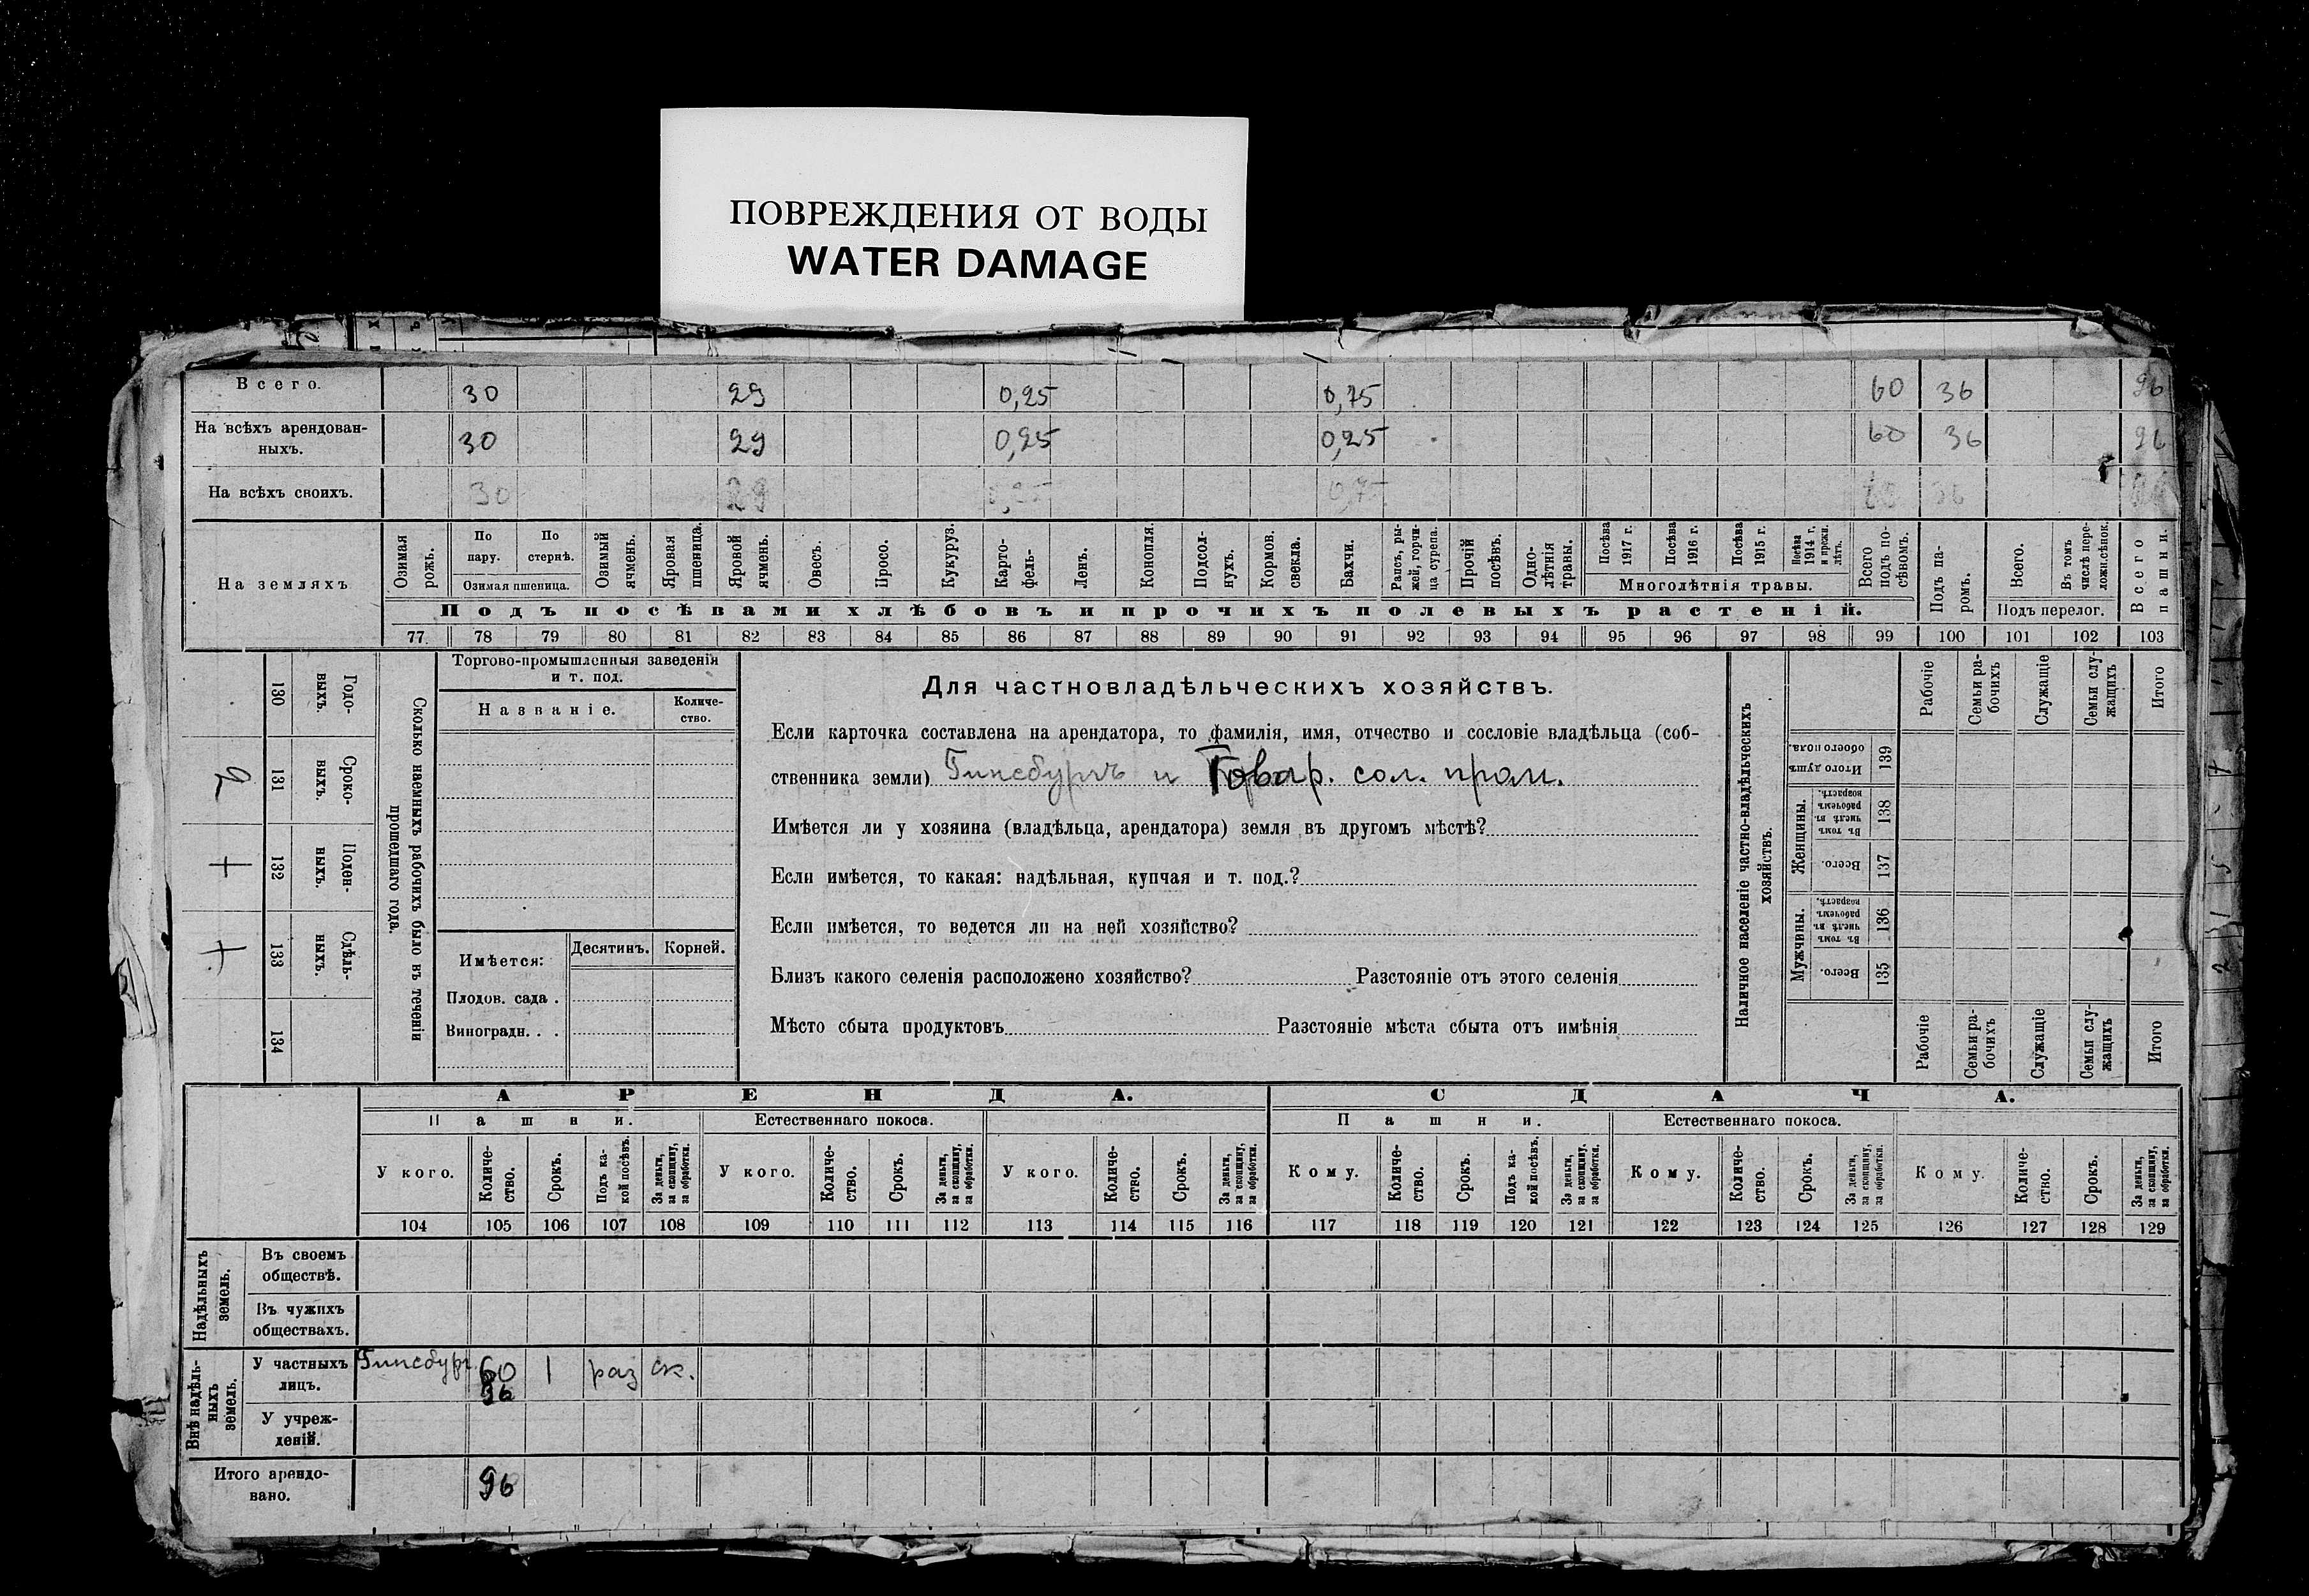 ПОВРЕЖДЕНИЯ ОТ ВОДЫ
WATER DAMAGE
Всего. 30 29 0,25 0,75 60 36 96
На всѣхъ арендован-
ныхъ. 30 29 0,25 0,25 60 36 96
На всѣхъ своихъ. 30 29 0,7 36
На земляхъ
Озимая рожь.
По пару.
По стернѣ.
Озимая пшеница.
Озимый ячмень.
Яровая пшеница.
Яровой ячмень.
Овесъ.
Просо.
Кукуруз.
Карто-
фель-
Ленъ.
Конопля.
Подсол-
нухъ.
Кормов.
свекла.
Бахчи.
Рапсъ, ры-
жей, горчи-
ца сурепа.
Прочій
посѣвъ.
Одно-
лѣтнія
травы.
Посѣва
1917 г.
Посѣва
1916 г.
Посѣва
1915 г.
Посѣва
1914 г.
и прежн.
лѣтъ.
Многолѣтнія травы.
Всего
подъ по-
сѣвомъ.
Подъ па-
ромъ.
Всего.
Въ томъ
числѣ пере-
ложн.сѣнок.
Подъ перелог.
Всего
пашни.
Подъ посѣвами хлѣбовъ и прочихъ полевыхъ растеній.
77 78 79 80 81 82 83 84 85 86 87 88 89 90 91 92 93 94 95 96 97 98 99 100 101 102 103
Сколько наемныхъ рабочихъ было въ теченіи
прошедшаго года.
Годо-
выхъ.
130
Сроко-
выхъ.
131
2
Поден-
ныхъ.
132
+
Сдѣль-
ныхъ.
133
+
134
Торгово-промышленныя заведенія
и т. под.
Названіе.
Количе-
ство.
Имѣется:
Десятинъ. Корней.
Плодов. сада .
Виноградн. . .
Для частновладѣльческихъ хозяйствъ.
Если карточка составлена на арендатора, то фамилія, имя, отчество и сословіе владѣльца (соб-
ственника земли) Гинсбургъ и Товар. сол. пром.
Имѣется ли у хозяина (владѣльца, арендатора) земля въ другомъ мѣстѣ?
Если имѣется, то какая: надѣльная, купчая и т. под.?
Если имѣется, то ведется ли на ней хозяйство?
Близъ какого селенія расположено хозяйство? Разстояніе отъ этого селенія
Мѣсто сбыта продуктовъ Разстояніе мѣста сбыта отъ имѣнія
Наличное населеніе частно-владѣльческихъ
хозяйствъ.
Рабочіе
Семьи ра-
бочихъ
Служащіе
Семьи слу-
жащихъ
Итого
Итого душъ
обоего пола.
139
Женщины.
Въ томъ
числѣ въ
рабочемъ
возрастѣ.
138
Всего.
137
Мужчины.
Въ томъ
числѣ въ
рабочемъ
возрастѣ.
136
Всего.
135
Рабочіе
Семьи ра-
бочихъ
Служащіе
Семьи слу-
жащихъ
Итого
АРЕНДА. СДАЧА.
Пашни. Естественнаго покоса. Пашни. Естественнаго покоса.
У кого.
Количе-
ство.
Срокъ.
Подъ ка-
кой посѣвъ.
За деньги,
за скопщину,
за обработки.
У кого.
Количе-
ство.
Срокъ.
За деньги,
за скопщину,
за обработки.
У кого.
Количе-
ство.
Срокъ.
За деньги,
за скопщину,
за обработки.
Кому.
Количе-
ство.
Срокъ.
Подъ ка-
кой посѣвъ.
За деньги,
за скопщину,
за обработки.
Кому.
Количе-
ство.
Срокъ.
За деньги,
за скопщину,
за обработки.
Кому.
Количе-
ство.
Срокъ.
За деньги,
за скопщину,
за обработки.
104 105 106 107 108 109 110 111 112 113 114 115 116 117 118 119 120 121 122 123 124 125 126 127 128 129
Надѣльныхъ
земель.
Въ своемъ
обществѣ.
Въ чужихъ
обществахъ.
Внѣ надѣль-
ныхъ
земель.
У частныхъ
лицъ.
Гинсбург 60 1 раз ск.
96
У учреж-
деній.
Итого арендо-
вано. 96